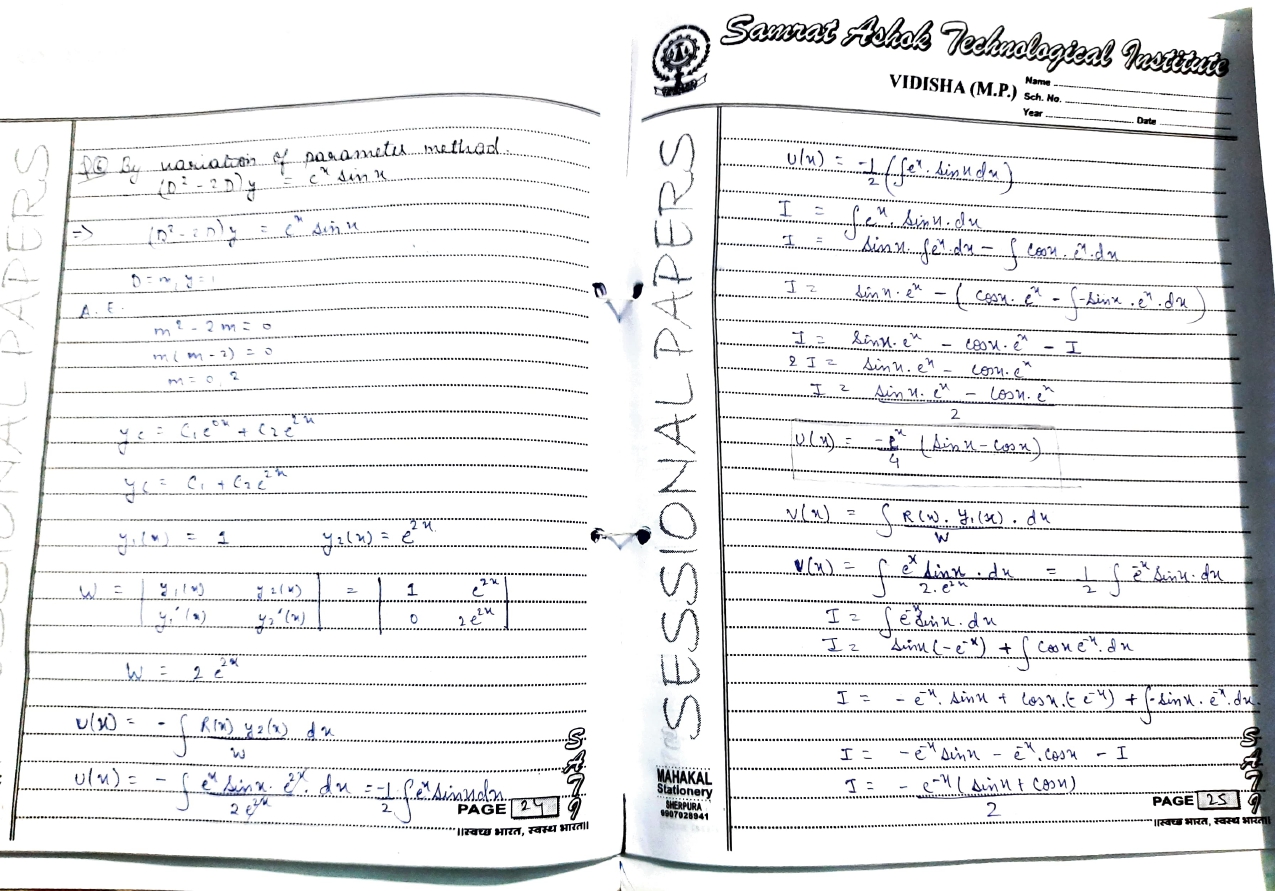 SESSIONAL PAPERS
Q⑥ By variation of parameter method.
(D² - 2D)y = eˣ sin x
=> (D² - 2D)y = eˣ sin x
D = m, y = 1
A.E.
m² - 2m = 0
m(m - 2) = 0
m = 0, 2
yc = C₁e⁰ˣ + C₂e²ˣ
yc = C₁ + C₂e²ˣ
y₁(x) = 1 y₂(x) = e²ˣ
W = | y₁(x) y₂(x) | = | 1 e²ˣ |
| y₁'(x) y₂'(x) | | 0 2e²ˣ |
W = 2e²ˣ
u(x) = - ∫ R(x) y₂(x) / W dx
u(x) = - ∫ eˣ sin x . e²ˣ / 2e²ˣ . dx = -1/2 ∫ eˣ sin x dx
PAGE 24
SATI 79
॥स्वच्छ भारत, स्वस्थ भारत॥
Samrat Ashok Technological Institute
VIDISHA (M.P.)
Name
Sch. No.
Year Date
SESSIONAL PAPERS
u(x) = -1/2 (∫ eˣ . sin x dx)
I = ∫ eˣ sin x . dx
I = sin x . ∫ eˣ . dx - ∫ cos x . eˣ . dx
I = sin x . eˣ - (cos x . eˣ - ∫ -sin x . eˣ . dx)
I = sin x . eˣ - cos x . eˣ - I
2I = sin x . eˣ - cos x . eˣ
I = sin x . eˣ - cos x . eˣ / 2
u(x) = -eˣ/4 (sin x - cos x)
v(x) = ∫ R(x) . y₁(x) / W . dx
v(x) = ∫ eˣ sin x / 2.e²ˣ . dx = 1/2 ∫ e⁻ˣ sin x . dx
I = ∫ e⁻ˣ sin x . dx
I = sin x (-e⁻ˣ) + ∫ cos x e⁻ˣ . dx
I = - e⁻ˣ . sin x + cos x . (-e⁻ˣ) + ∫ -sin x . e⁻ˣ . dx
I = - e⁻ˣ sin x - e⁻ˣ . cos x - I
I = - e⁻ˣ (sin x + cos x) / 2
MAHAKAL
Stationery
SHERPURA
9907028941
PAGE 25
SATI 79
॥स्वच्छ भारत, स्वस्थ भारत॥